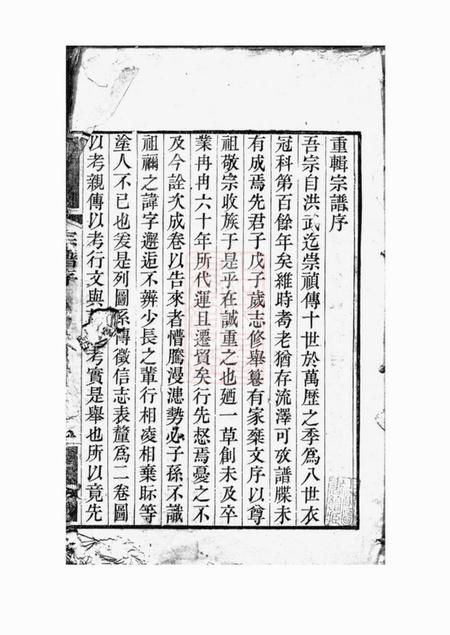 重輯宗譜序
吾宗自洪武迄崇禎傳十世於萬歷之季為八世衣
冠科第百餘年矣維時耈老猶存流澤可攷譜牒未
有成焉先君子戊子歲志修舉篹有家乘文序以尊
祖敬宗收族于是乎在誠重之也廼一草創未及卒
業冉冉六十年所代運且遷貿矣行先惄焉憂之不
及今詮次成卷以告來者懵騰漫漶勢必子孫不識
祖禰之諱字邂逅不辨少長之軰行相凌相棄眎等
塗人不已也爰是列圖系傳徵信志表釐為二卷圖
以考親傳以考行文與 考實是舉也所以竟先
宗譜序